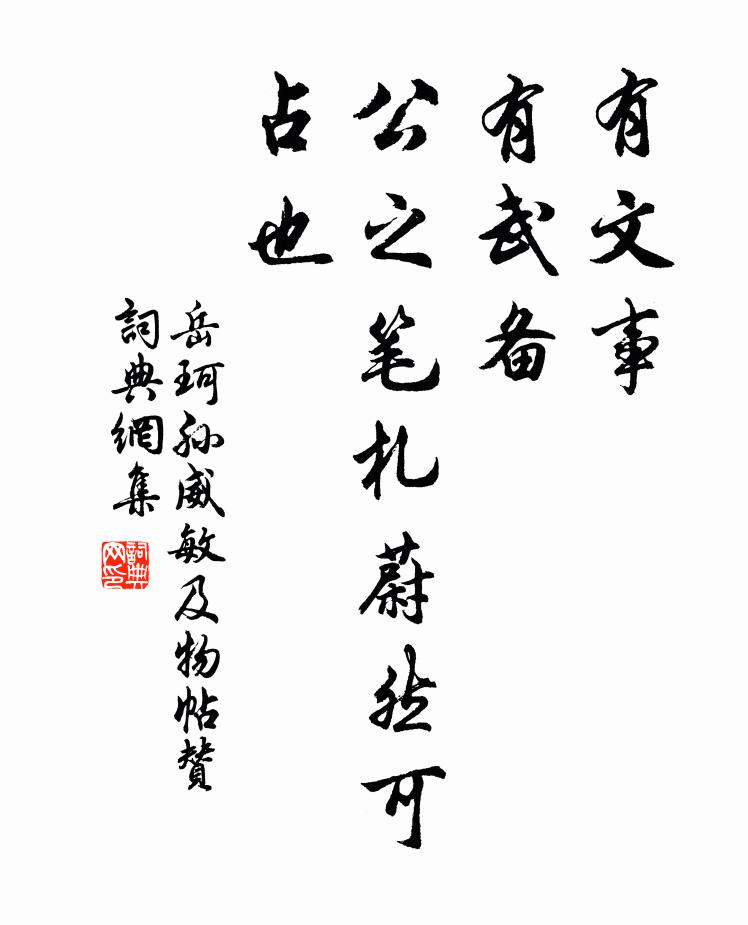 有文事
有武备
公之笔札蔚然可
占也
岳珂孙威敏及物帖贊
詞典網集
詞典
网印